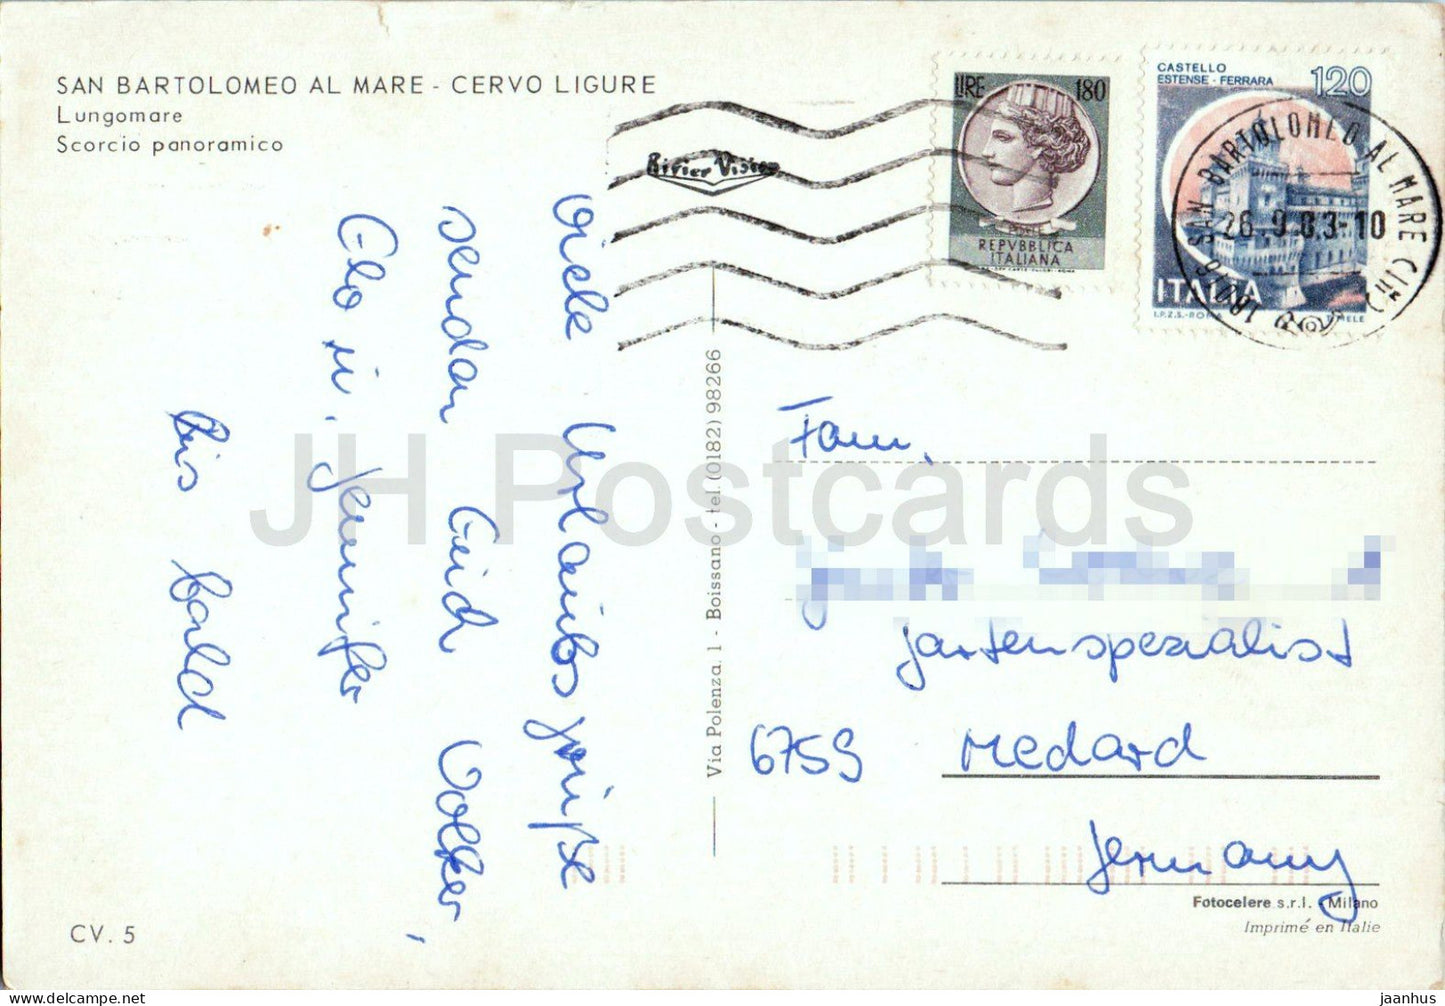 SAN BARTOLOMEO AL MARE - CERVO LIGURE
Lungomare
Scorcio panoramico
Viele Urlaubsgrüße
senden Euch Volker,
Elo u. Jennifer
Bis bald
CV. 5
Via Polenza, 1 - Boissano - tel. (0182) 98266
Rivier Vision
LIRE 180
POSTE
REPVBBLICA
ITALIANA
CASTELLO
ESTENSE - FERRARA
120
ITALIA
I.P.Z.S.-ROMA
18016 SAN BARTOLOMEO AL MARE (IM)
26.9.83-10
Fam.
Gartenspezialist
6759 Medard
Germany
Fotocelere s.r.l. - Milano
Imprimé en Italie
JH Postcards
jaanhus